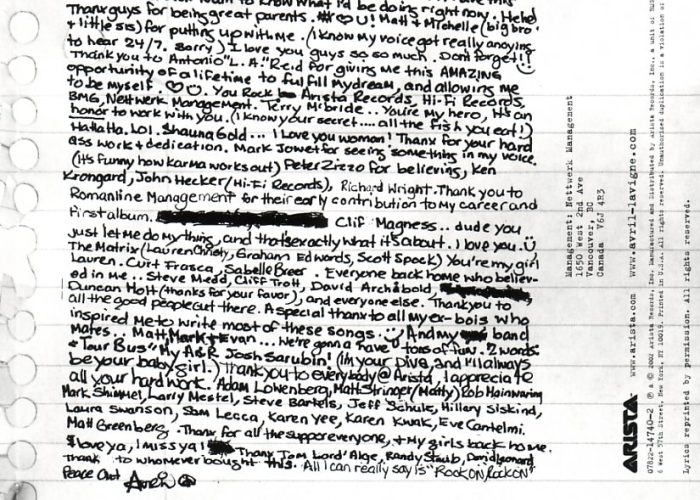 to know what I'd be doing right now. Hehe!
Thanx guys for being great parents. U! Matt + Michelle (big bro
+ little sis) for putting up with me. (I know my voice got really anoying
to hear 24/7. Sorry) I love you guys so so much. Don't forget!!
Thank you to Antonio "L.A." Reid for giving me this AMAZING
opportunity of a lifetime to fulfill my dream, and allowing me
to be myself. U. You Rock Arista Records, Hi-Fi Records,
BMG, Nettwerk Management. Terry McBride.. You're my hero, It's an
honor to work with you. (I know your secret.... all the fish you eat!)
Ha Ha Ha, Lol. Shauna Gold... I love you woman! Thanx for your hard
ass work + dedication. Mark Jowet for seeing something in my voice.
(It's funny how karma works out) Peter Zizzo for believing, Ken
Krongard, John Hecker (Hi-Fi Records), Richard Wright. Thank you to
Romanline Management for their early contribution to my career and
First album. Clif Magness.. dude you
just let me do my thing, and that's exactly what it's about. I love you.
The Matrix (Lauren Christy, Graham Edwards, Scott Spock) You're my girl
Lauren. Curt Frasca, Sabelle Breer. Everyone back home who believ-
ed in me.. Steve Medd, Cliff Trott, David Archibold,
Duncan Holt (thanks for your favor), and everyone else. Thank you to
all the good people out there. A special thanx to all my ex-bois who
inspired me to write most of these songs. And my band
mates.. Matt, Mark + Evan... We're gonna have tons of fun. 2 words
"Tour Bus" My A&R Josh Sarubin! (I'm your Diva, and I'll always
be your baby girl.) Thank you to everybody @ Arista, I appreciate
all your hard work. Adam Lowenberg, Matt Stringer (Matty) Rob Mainwaring
Mark Shimmel, Larry Mestel, Steve Bartels, Jeff Schulz, Hillary Siskind,
Laura Swanson, Sam Lecca, Karen Yee, Karen Kwak, Eve Cantelmi.
Matt Greenberg. Thanx for all the support everyone, + my girls back home.
I love ya, I miss ya! Thanx Tom Lord'Alge, Randy Staub, David Leonard
Thank to whomever bought this. All I can really say is "ROCK ON, ROCK ON"
Peace Out
Management: Nettwerk Management
1650 West 2nd Ave
Vancouver, BC
Canada V6J 4R3
www.arista.com www.avril-lavigne.com
ARISTA
07822-14740-2 ℗ & © 2002 Arista Records, Inc. Manufactured and Distributed by Arista Records, Inc., a unit of BMG
6 West 57th Street, New York, NY 10019. Printed in U.S.A. All rights reserved. Unauthorized duplication is a violation of
Lyrics reprinted by permission. All rights reserved.